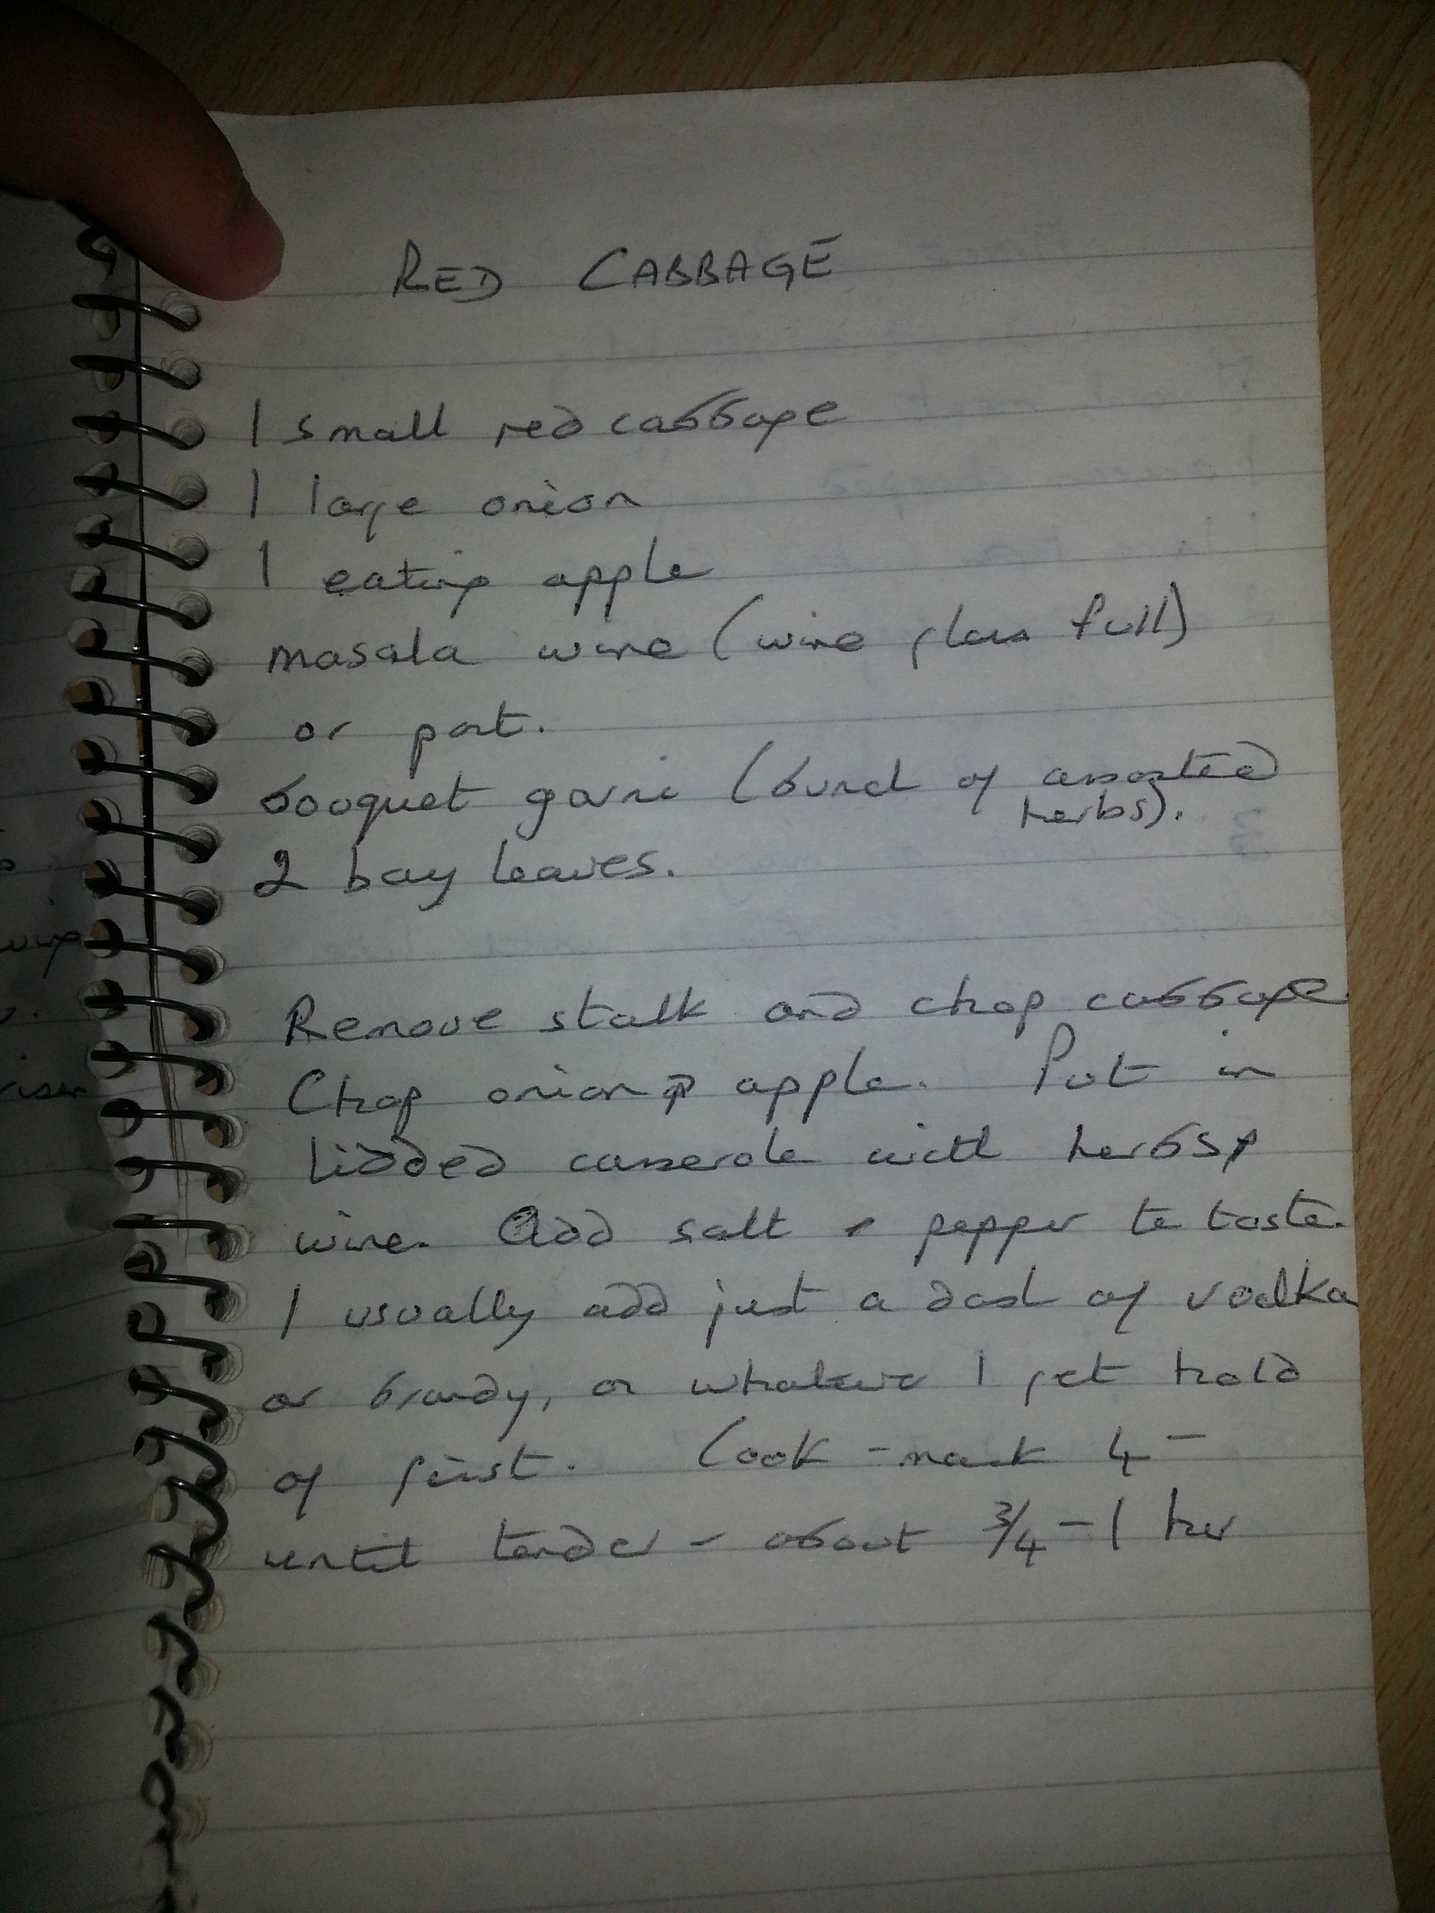 RED CABBAGE
1 small red cabbage
1 large onion
1 eating apple
masala wine (wine glass full)
or port.
bouquet garni (bunch of assorted
herbs).
2 bay leaves.
Remove stalk and chop cabbage
Chop onion & apple. Put in
lidded casserole with herbs &
wine. Add salt & pepper to taste.
I usually add just a dash of vodka
or brandy, or whatever I get hold
of first. Cook - mark 4 -
until tender - about 3/4 - 1 hr